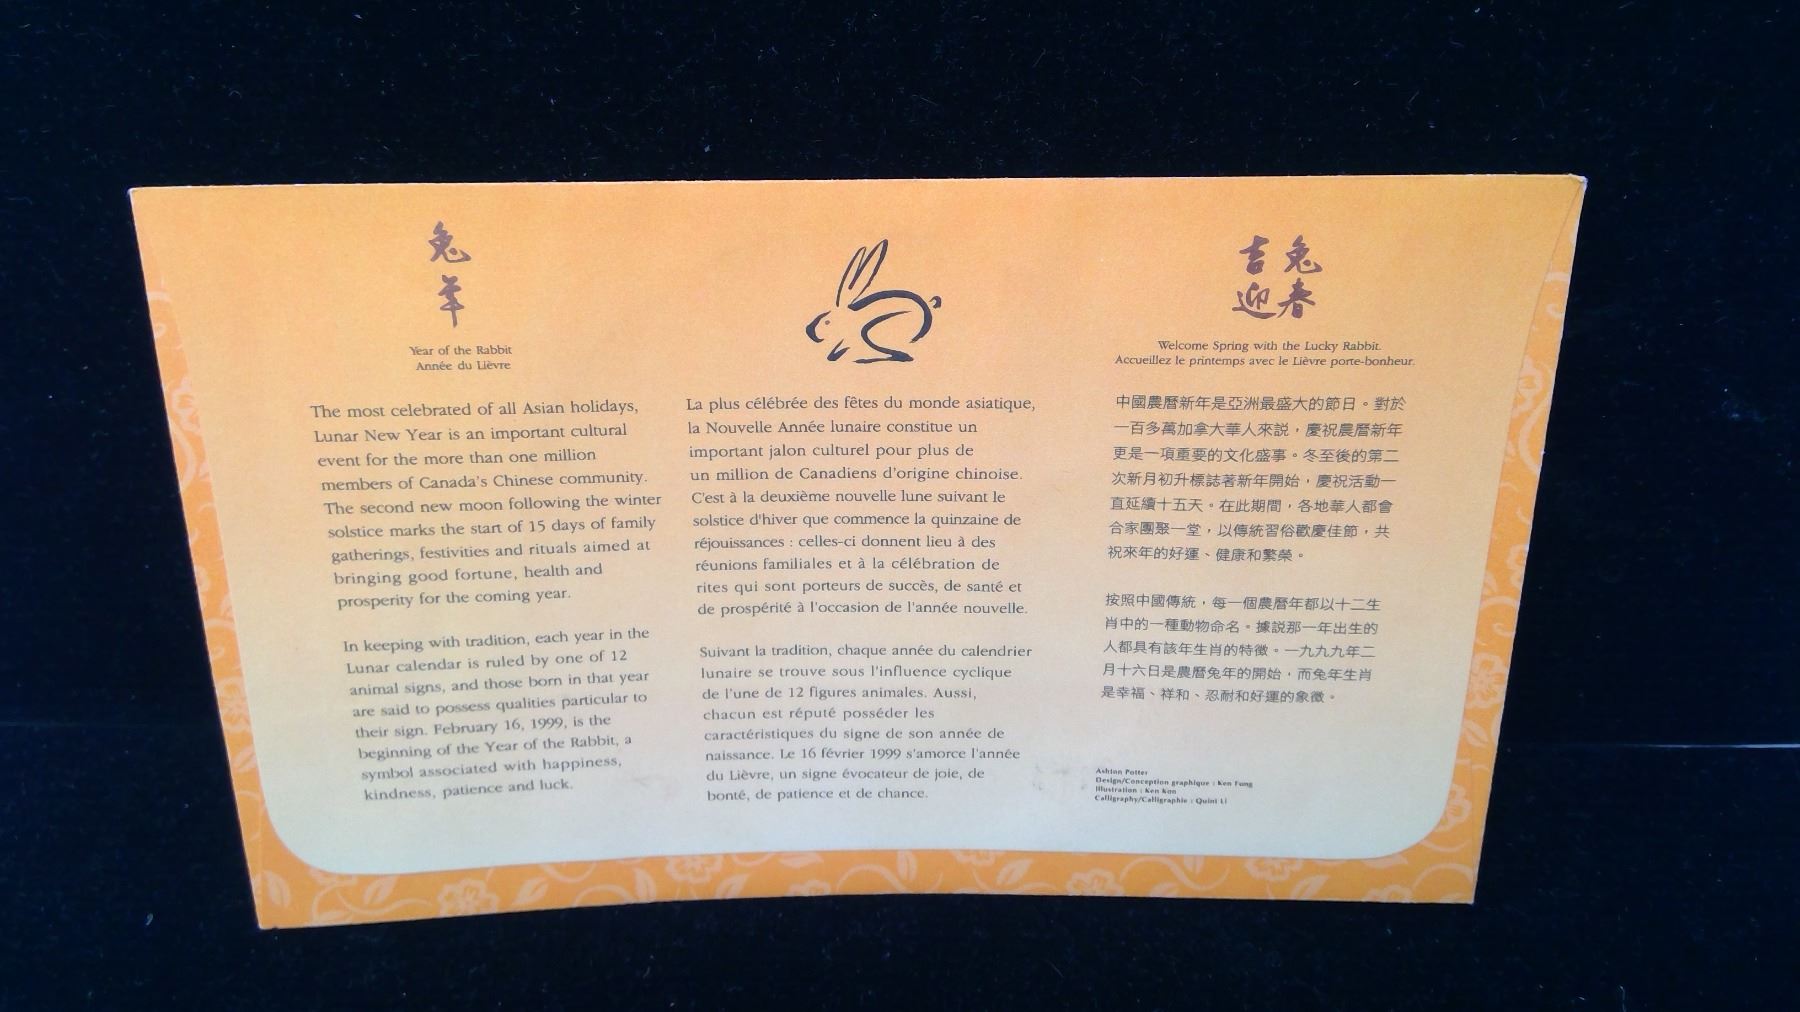 兔
年
Year of the Rabbit
Année du Lièvre
The most celebrated of all Asian holidays,
Lunar New Year is an important cultural
event for the more than one million
members of Canada's Chinese community.
The second new moon following the winter
solstice marks the start of 15 days of family
gatherings, festivities and rituals aimed at
bringing good fortune, health and
prosperity for the coming year.
In keeping with tradition, each year in the
Lunar calendar is ruled by one of 12
animal signs, and those born in that year
are said to possess qualities particular to
their sign. February 16, 1999, is the
beginning of the Year of the Rabbit, a
symbol associated with happiness,
kindness, patience and luck.
La plus célébrée des fêtes du monde asiatique,
la Nouvelle Année lunaire constitue un
important jalon culturel pour plus de
un million de Canadiens d'origine chinoise.
C'est à la deuxième nouvelle lune suivant le
solstice d'hiver que commence la quinzaine de
réjouissances : celles-ci donnent lieu à des
réunions familiales et à la célébration de
rites qui sont porteurs de succès, de santé et
de prospérité à l'occasion de l'année nouvelle.
Suivant la tradition, chaque année du calendrier
lunaire se trouve sous l'influence cyclique
de l'une de 12 figures animales. Aussi,
chacun est réputé posséder les
caractéristiques du signe de son année de
naissance. Le 16 février 1999 s'amorce l'année
du Lièvre, un signe évocateur de joie, de
bonté, de patience et de chance.
吉兔
迎春
Welcome Spring with the Lucky Rabbit.
Accueillez le printemps avec le Lièvre porte-bonheur.
中國農曆新年是亞洲最盛大的節日。對於
一百多萬加拿大華人來説，慶祝農曆新年
更是一項重要的文化盛事。冬至後的第二
次新月初升標誌著新年開始，慶祝活動一
直延續十五天。在此期間，各地華人都會
合家團聚一堂，以傳統習俗歡慶佳節，共
祝來年的好運、健康和繁榮。
按照中國傳統，每一個農曆年都以十二生
肖中的一種動物命名。據説那一年出生的
人都具有該年生肖的特徵。一九九九年二
月十六日是農曆兔年的開始，而兔年生肖
是幸福、祥和、忍耐和好運的象徵。
Ashton Potter
Design/Conception graphique : Ken Fung
Illustration : Ken Koo
Calligraphy/Calligraphie : Quini Li